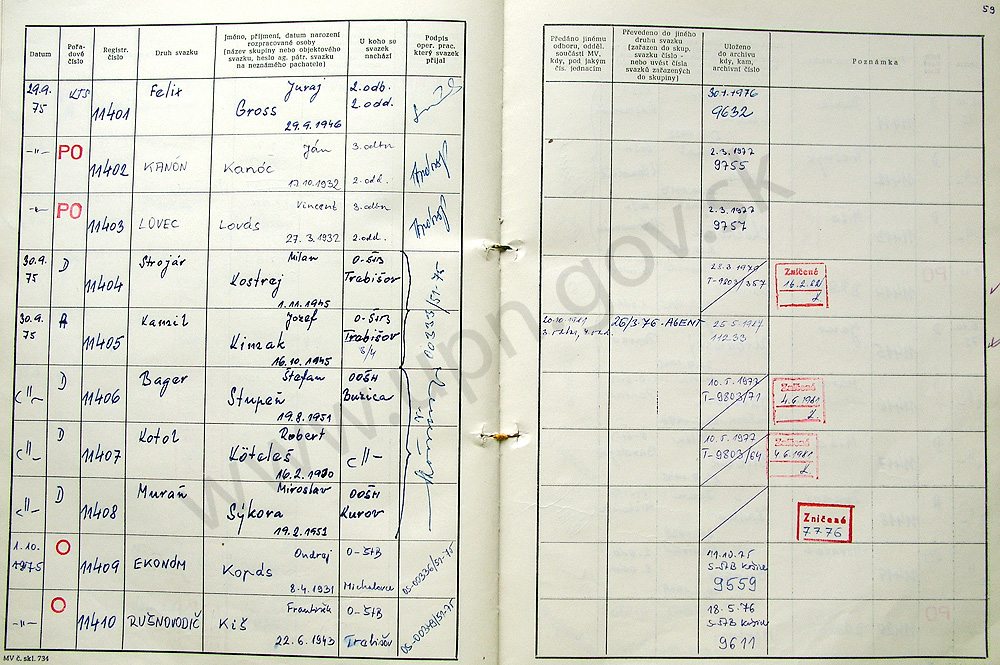 59
Datum
Pořadové číslo
Registr. číslo
Druh svazku
Jméno, příjmení, datum narození rozpracované osoby (název skupiny nebo objektového svazku, heslo ag. pátr. svazku na neznámého pachatele)
U koho se svazek nachází
Podpis oper. prac. který svazek přijal
Předáno jinému odboru, odděl. součásti MV, kdy, pod jakým čís. jednacím
Převedeno do jiného druhu svazku (zařazen do skup. svazku číslo - nebo uvést čísla svazků zařazených do skupiny)
Uloženo do archivu kdy, kam, archivní číslo
Poznámka
29.9. 75 KTS 11401 Felix Juraj Gross 29.9.1946 2. odb. 2. odd.
30.1.1976 9632
-"- PO 11402 KANÓN Ján Kanóc 17.10.1932 3. odbn 2. odd.
2.3.1977 9755
-"- PO 11403 LOVEC Vincent Lovás 27.3.1932 3. odbn 2. odd.
2.3.1977 9757
30.9. 75 D 11404 Strojár Milan Kostrej 1.11.1945 O-ŠtB Trebišov
T-9803/357 Zničené
30.9. 75 A 11405 Kamil Jozef Kimak 16.10.1945 O-ŠtB Trebišov
26/3-76-AGENT 11233
-"- D 11406 Bager Štefan Stupeň 19.8.1951 OOŠH Buzica
10.5.1977 T-9803/71 Zničené 4.6.1981
-"- D 11407 Kotol Robert Köteleš 16.2.1970 -"-
10.5.1977 T-9803/64 Zničené 4.6.1981
-"- D 11408 Muraň Miroslav Sýkora 19.2.1951 OOŠH Kurov
Zničené 7776
1.10. 1975 O 11409 EKONÓM Ondrej Kopás 8.4.1931 O-ŠtB Michalovce OS-00336/51-75
S-ŠtB Košice 9559
-"- O 11410 RUŠŇOVODIČ František Kiš 22.6.1943 O-ŠtB Trebišov
18.5.76 S-ŠtB Košice 9611
MV č. skl. 734
www.upn.gov.sk